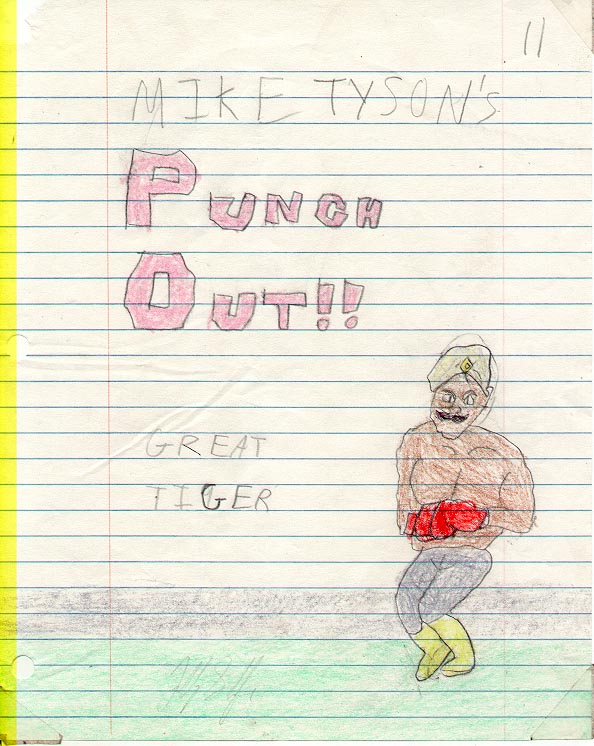 11
MIKE TYSON'S
PUNCH
OUT!!
GREAT
TIGER